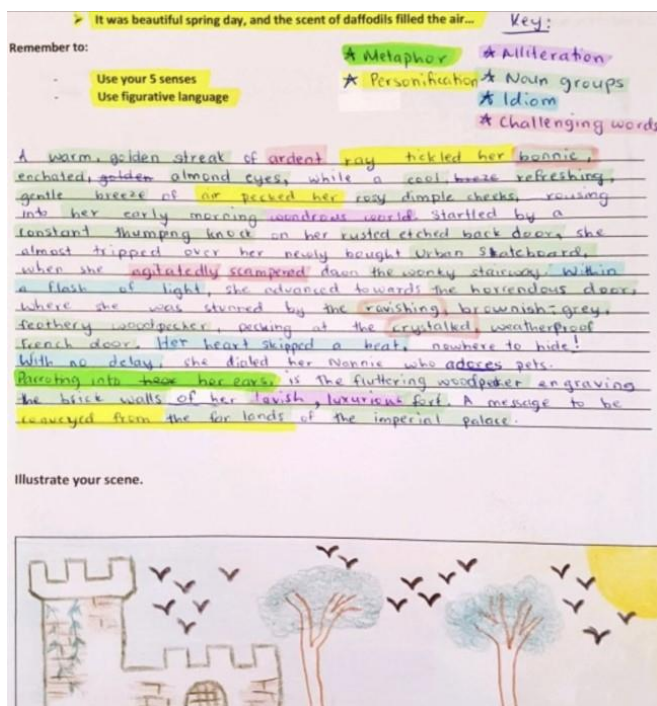 ➤ It was beautiful spring day, and the scent of daffodils filled the air...
Key:
Remember to:
★ Metaphor ★ Alliteration
- Use your 5 senses
★ Personification ★ Noun groups
- Use figurative language
★ Idiom
★ Challenging words
A warm, golden streak of ardent ray tickled her bonnie,
enchated, golden almond eyes, while a cool, breeze refreshing,
gentle breeze of air pecked her rosy dimple cheeks, rousing
into her early morning wondrous world. Startled by a
constant thumpng knock on her rusted etched back door, she
almost tripped over her newly bought Urban Skateboard,
when she agitatedly scampered down the wonky stairway. Within
a flash of light, she advanced towards the horrendous door,
where she was stunned by the ravishing, brownish-grey,
feathery woodpecker, pecking at the crystalled, weatherproof
French door. Her heart skipped a beat, nowhere to hide!
With no delay, she dialed her Nannie who adores pets.
Parroting into her ears, is the fluttering woodpeker engraving
the brick walls of her lavish, luxurious fort. A message to be
conveyed from the far lands of the imperial palace.
Illustrate your scene.